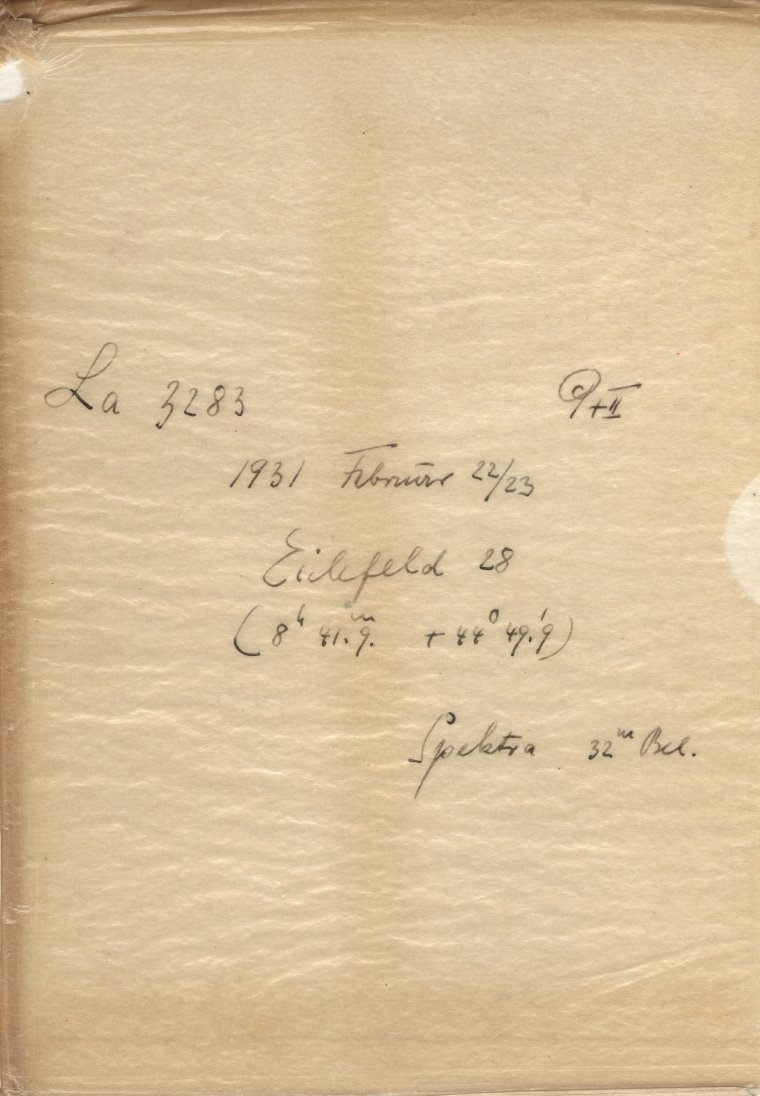 La 3283 P+II
1931 Februar 22/23
Eichfeld 28
(8h 41.m9. + 44° 49.'9)
Spektra 32m Bel.